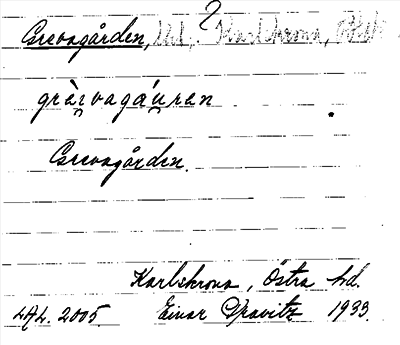 ?
Grevagården, Utl. Karlskrona, Östr.
grèvagáuren
Grevagården.
Karlskrona, Östra hd.
LAL. 2005. Einar Dravitz 1933